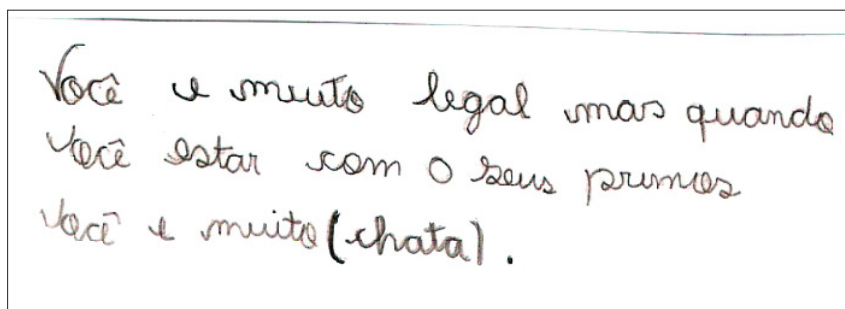 Você e muuto legal mas quando
você estar com o seus primos
você e muito (chata).